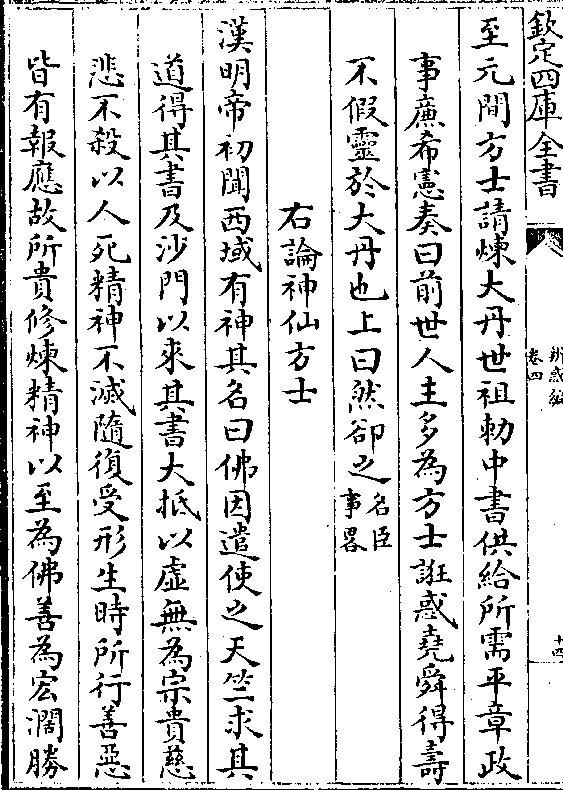 欽定四庫全書
辨惑編
卷四
十四
至元間方士請煉大丹世祖勅中書供給所需平章政
事廉希憲奏曰前世人主多為方士誑惑堯舜得壽
不假靈於大丹也上曰然卻之名臣
事畧
右論神仙方士
漢明帝初聞西域有神其名曰佛因遣使之天竺求其
道得其書及沙門以來其書大抵以虛無為宗貴慈
悲不殺以人死精神不滅隨復受形生時所行善惡
皆有報應故所貴修煉精神以至為佛善為宏濶勝